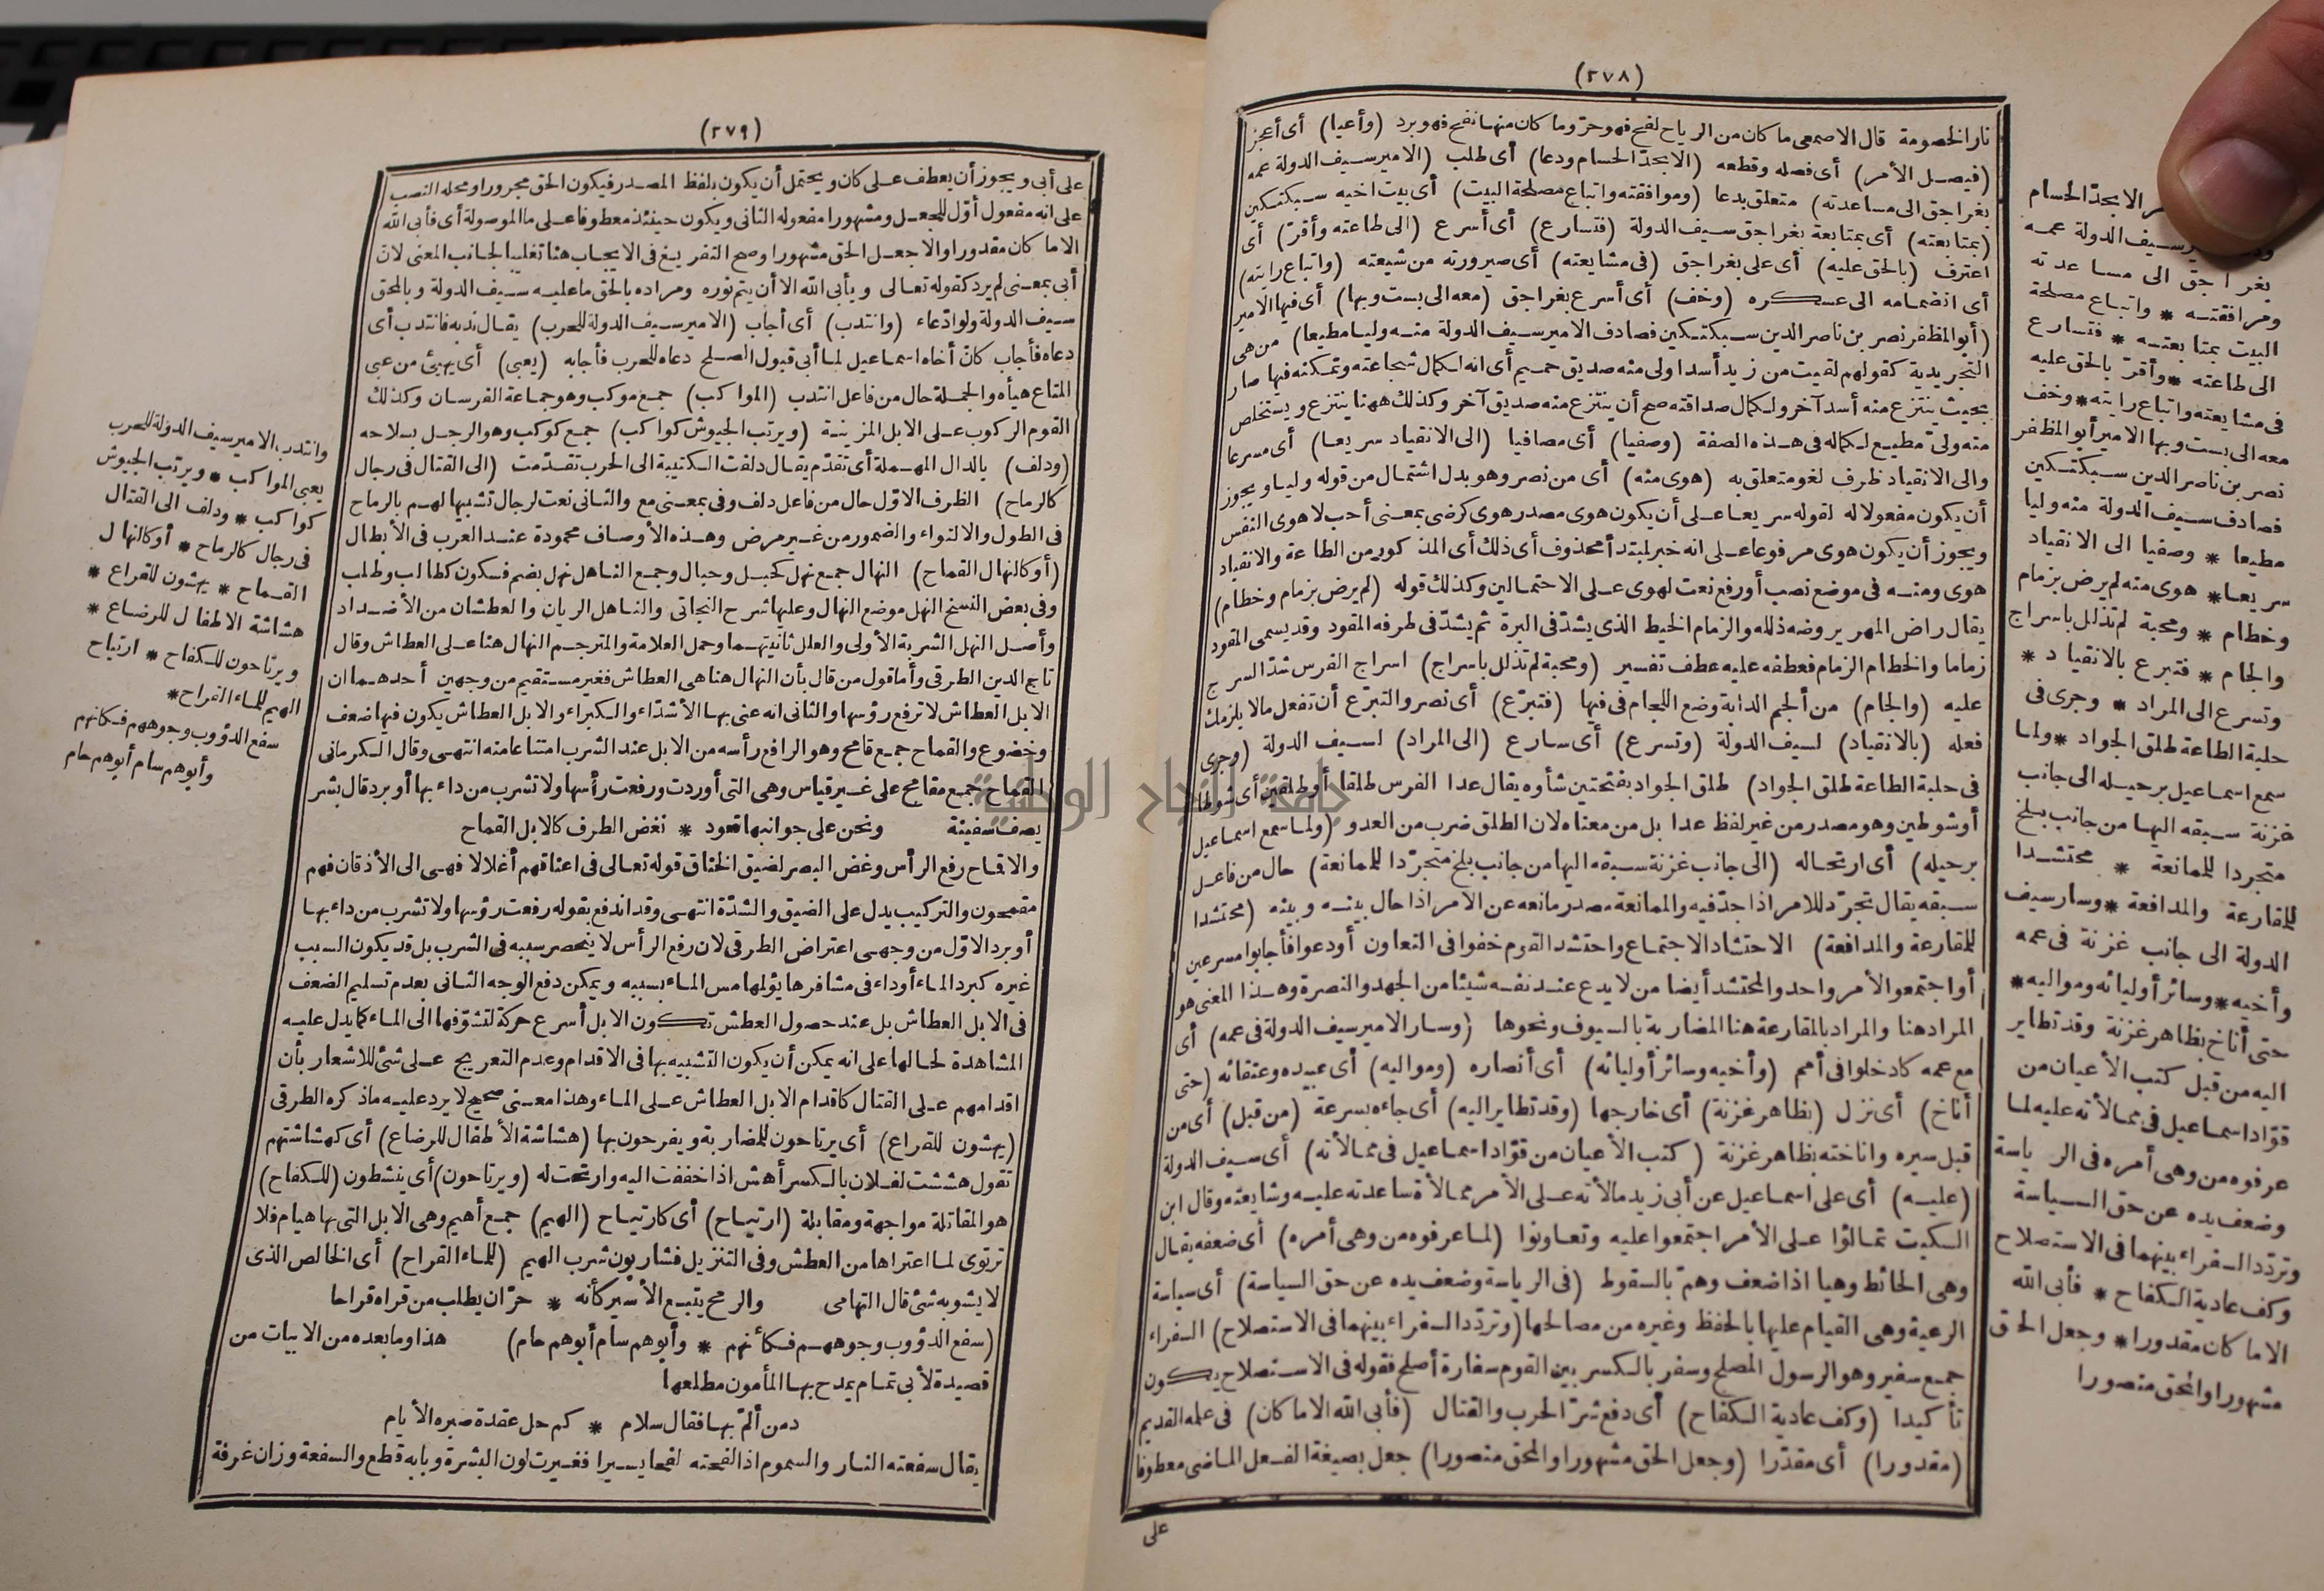 (٢٧٨)
نار الخصومة قال الاصمعى ما كان من الرياح لفح فهو حرّ وما كان منها نفح فهو برد (وأعيا) أى أعجز
(فيصل الأمر) أى فصله وقطعه (الا بحدّ الحسام ودعا) أى طلب (الامير سيف الدولة عمه
بغراجق الى مساعدته) متعلق بدعا (وموافقته واتباع مصلحة البيت) أى بيت اخيه سبكتكين
(بمتابعته) أى بمتابعة بغراجق سيف الدولة (فتسارع) أى أسرع (الى طاعته وأقرّ) أى
اعترف (بالحق عليه) أى على بغراجق (فى مشايعته) أى صيرورته من شيعته (واتباع رايته)
أى انضمامه الى عسكره (وخف) أى أسرع بغراجق (معه الى بست وبها) أى فيها الامير
(أبو المظفر نصر بن ناصر الدين سبكتكين فصادف الامير سيف الدولة منه وليا مطيعا) من هى
التجريدية كقولهم لقيت من زيد أسدا ولى منه صديق حميم أى انه لكمال شجاعته وتمكنه فيها صار
بحيث ينتزع منه أسد آخر ولكمال صداقته صح أن ينتزع منه صديق آخر وكذلك ههنا ينتزع ويستخلص
منه ولىّ مطيع لكماله فى هذه الصفة (وصفيا) أى مصافيا (الى الانقياد سريعا) أى مسرعا
والى الانقياد ظرف لغو متعلق به (هوى منه) أى من نصر وهو بدل اشتمال من قوله وليا ويجوز
أن يكون مفعولا له لقوله سريعا على أن يكون هوى مصدر هوى كرضى بمعنى أحب لا هوى النفس
ويجوز أن يكون هوى مرفوعا على انه خبر لمبتدأ محذوف أى ذلك أى المذكور من الطاعة والانقياد
هوى ومنه فى موضع نصب أو رفع نعت لهوى على الاحتمالين وكذلك قوله (لم يرض بزمام وخطام)
يقال راض المهر يروضه ذلله والزمام الخيط الذى يشدّ فى البرة ثم يشدّ فى طرفه المقود وقد يسمى المقود
زماما والخطام الزمام فعطفه عليه عطف تفسير (ومحبة لم تذلل باسراج) اسراج الفرس شدّ السرج
عليه (والجام) من ألجم الدابة وضع اللجام فى فيها (فتبرّع) أى نصر والتبرّع أن تفعل مالا يلزمك
فعله (بالانقياد) لسيف الدولة (وتسرع) أى سارع (الى المراد) لسيف الدولة (وجرى
فى حلبة الطاعة طلق الجواد) طلق الجواد بفتحتين شأوه يقال عدا الفرس طلقا أو طلقين أى شوطا
أو شوطين وهو مصدر من غير لفظ عدا بل من معناه لان الطلق ضرب من العدو (ولما سمع اسماعيل
برحيله) أى ارتحاله (الى جانب غزنة سبقه اليها من جانب بلخ متجرّدا للممانعة) حال من فاعل
سبقه يقال تجرّد للامر اذا جدّ فيه والممانعة مصدر مانعه عن الامر اذا حال بينه وبينه (محتشدا
للمقارعة والمدافعة) الاحتشاد الاجتماع واحتشد القوم خفوا فى التعاون أو دعوا فأجابوا مسرعين
أو اجتمعوا لأمر واحد والمحتشد أيضا من لا يدع عند نفسه شيئا من الجهد والنصرة وهذا المعنى هو
المراد هنا والمراد بالمقارعة هنا المضاربة بالسيوف ونحوها (وسار الامير سيف الدولة فى عمه) أى
مع عمه كادخلوا فى أمم (وأخيه وسائر أوليائه) أى أنصاره (ومواليه) أى عبيده وعتقائه (حتى
أناخ) أى نزل (بظاهر غزنة) أى خارجها (وقد تطاير اليه) أى جاءه بسرعة (من قبل) أى من
قبل سيره واناخته بظاهر غزنة (كتب الأعيان من قوّاد اسماعيل فى ممالأته) أى سيف الدولة
(عليه) أى على اسماعيل عن أبى زيد مالأته على الأمر ممالأة ساعدته عليه وشايعته وقال ابن
السكيت تمالؤا على الأمر اجتمعوا عليه وتعاونوا (لما عرفوه من وهى أمره) أى ضعفه يقال
وهى الحائط وهيا اذا ضعف وهمّ بالسقوط (فى الرياسة وضعف يده عن حق السياسة) أى سياسة
الرعية وهى القيام عليها بالحفظ وغيره من مصالحها (وتردّد السفراء بينهما فى الاستصلاح) السفراء
جمع سفير وهو الرسول المصلح وسفر بالكسر بين القوم سفارة أصلح فقوله فى الاستصلاح يكون
تأكيدا (وكف عادية الكفاح) أى دفع شرّ الحرب والقتال (فأبى الله الا ما كان) فى علمه القديم
(مقدورا) أى مقدّرا (وجعل الحق مشهورا والمحق منصورا) جعل بصيغة الفعل الماضى معطوفا
على
الا بحدّ الحسام
سيف الدولة عمه
بغراجق الى مساعدته
ومرافقته * واتباع مصلحة
البيت بمتابعته * فتسارع
الى طاعته * وأقرّ بالحق عليه
فى مشايعته واتباع رايته * وخف
معه الى بست وبها الامير أبو المظفر
نصر بن ناصر الدين سبكتكين
فصادف سيف الدولة منه وليا
مطيعا * وصفيا الى الانقياد
سريعا * هوى منه لم يرض بزمام
وخطام * ومحبة لم تذلل باسراج
والجام * فتبرع بالانقياد *
وتسرع الى المراد * وجرى فى
حلبة الطاعة طلق الجواد * ولما
سمع اسماعيل برحيله الى جانب
غزنة سبقه اليها من جانب بلخ
متجردا للممانعة * محتشدا
للمقارعة والمدافعة * وسار سيف
الدولة الى جانب غزنة فى عمه
وأخيه * وسائر أوليائه ومواليه *
حتى أناخ بظاهر غزنة وقد تطاير
اليه من قبل كتب الأعيان من
قوّاد اسماعيل فى ممالأته عليه لما
عرفوه من وهى أمره فى الرياسة
وضعف يده عن حق السياسة
وتردّد السفراء بينهما فى الاستصلاح
وكف عادية الكفاح * فأبى الله
الا ما كان مقدورا * وجعل الحق
مشهورا والمحق منصورا
(٢٧٩)
على أبى ويجوز أن يعطف على كان ويحتمل أن يكون بلفظ المصدر فيكون الحق مجرورا ومحله النصب
على انه مفعول أوّل للجعل ومشهورا مفعوله الثانى ويكون حينئذ معطوفا على ما الموصولة أى فأبى الله
الا ما كان مقدورا والا جعل الحق مشهورا وصح التفريغ فى الايجاب هنا تغليبا لجانب المعنى لان
أبى بمعنى لم يرد كقوله تعالى ويأبى الله الا أن يتم نوره ومراده بالحق ما عليه سيف الدولة وبالمحق
سيف الدولة ولو ادّعاء (وانتدب) أى أجاب (الامير سيف الدولة للحرب) يقال ندبه فانتدب أى
دعاه فأجاب كانّ أخاه اسماعيل لما أبى قبول الصلح دعاه للحرب فأجابه (يعبى) أى يهيئ من عبى
المتاع هيأه والجملة حال من فاعل انتدب (المواكب) جمع موكب وهو جماعة الفرسان وكذلك
القوم الركوب على الابل المزينة (ويرتب الجيوش كواكب) جمع كوكب وهو الرجل بسلاحه
(ودلف) بالدال المهملة أى تقدّم يقال دلفت الكتيبة الى الحرب تقدّمت (الى القتال فى رجال
كالرماح) الظرف الاوّل حال من فاعل دلف وفى بمعنى مع والثانى نعت لرجال تشبيها لهم بالرماح
فى الطول والالتواء والضمور من غير مرض وهذه الأوصاف محمودة عند العرب فى الأبطال
(أو كالنهال القماح) النهال جمع نهل كحبل وحبال وجمع الناهل نهل بضم فسكون كطالب وطلب
وفى بعض النسخ النهل موضع النهال وعليها شرح النجاتى والناهل الريان والعطشان من الأضداد
وأصل النهل الشربة الأولى والعلل ثانيتهما وحمل العلامة والمترجم النهال هنا على العطاش وقال
تاج الدين الطرقى وأما قول من قال بأن النهال هنا هى العطاش فغير مستقيم من وجهين أحدهما ان
الابل العطاش لا ترفع رؤسها والثانى انه عنى بها الأشدّاء والكبراء والابل العطاش يكون فيها ضعف
وخضوع والقماح جمع قامح وهو الرافع رأسه من الابل عند الشرب امتناعا منه انتهى وقال الكرمانى
القماح جمع مقامح على غير قياس وهى التى أوردت ورفعت رأسها ولا تشرب من داء بها أو برد قال بشر
يصف سفينة ونحن على جوانبها قعود * نغض الطرف كالابل القماح
والاقماح رفع الرأس وغض البصر لضيق الخناق قوله تعالى فى اعناقهم أغلالا فهى الى الأذقان فهم
مقمحون والتركيب يدل على الضيق والشدّة انتهى وقد اندفع بقوله رفعت رؤسها ولا تشرب من داء بها
أو برد الاوّل من وجهى اعتراض الطرقى لان رفع الرأس لا ينحصر سببه فى الشرب بل قد يكون السبب
غيره كبرد الماء أو داء فى مشافرها يؤلمها مس الماء بسببه ويمكن دفع الوجه الثانى بعدم تسليم الضعف
فى الابل العطاش بل عند حصول العطش تكون الابل أسرع حركة لتشوّفها الى الماء كما يدل عليه
المشاهدة لحالها على انه يمكن أن يكون التشبيه بها فى الاقدام وعدم التعريج على شئ للاشعار بأن
اقدامهم على القتال كاقدام الابل العطاش على الماء وهذا معنى صحيح لا يرد عليه ما ذكره الطرقى
(يهشون للقراع) أى يرتاحون للمضاربة ويفرحون بها (هشاشة الأطفال للرضاع) أى كهشاشتهم
تقول هششت لفلان بالكسر أهش اذا خففت اليه وارتحت له (ويرتاحون) أى ينشطون (للكفاح)
هو المقاتلة مواجهة ومقابلة (ارتياح) أى كارتياح (الهيم) جمع أهيم وهى الابل التى بها هيام فلا
ترتوى لما اعتراها من العطش وفى التنزيل فشاربون شرب الهيم (للماء القراح) أى الخالص الذى
لا يشوبه شئ قال التهامى والرمح يتبع الأسير كأنه * حرّان يطلب من قراه قراحا
(سفع الدؤوب وجوههم فكأنهم * وأبوهم سام أبوهم حام) هذا وما بعده من الابيات من
قصيدة لأبى تمام يمدح بها المأمون مطلعها
دمن ألمّ بها فقال سلام * كم حل عقدة صبره الأيام
يقال سفعته النار والسموم اذا لفحته لفحا يسيرا فغيرت لون البشرة وبابه قطع والسفعة وزان غرفة
وانتدب الامير سيف الدولة للحرب
يعبى المواكب * ويرتب الجيوش
كواكب * ودلف الى القتال
فى رجال كالرماح * أو كالنهال
القماح * يهشون للقراع *
هشاشة الاطفال للرضاع *
ويرتاحون للكفاح * ارتياح
الهيم للماء القراح *
سفع الدؤوب وجوههم فكانهم
وأبوهم سام أبوهم حام
جامعة النجاح الوطنية